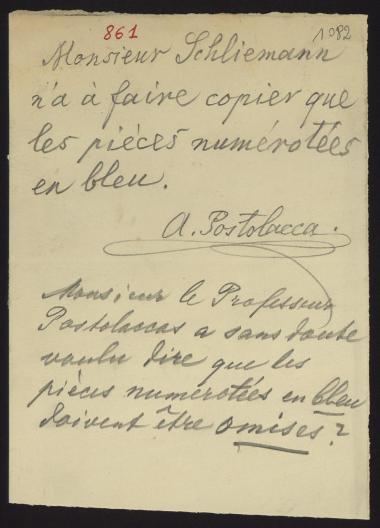 861 1082
Monsieur Schliemann
n'a à faire copier que
les pièces numérotées
en bleu.
A. Postolacca.
Monsieur le Professeur
Postolaccas a sans doute
voulu dire que les
pièces numerotées en bleu
doivent être omises?